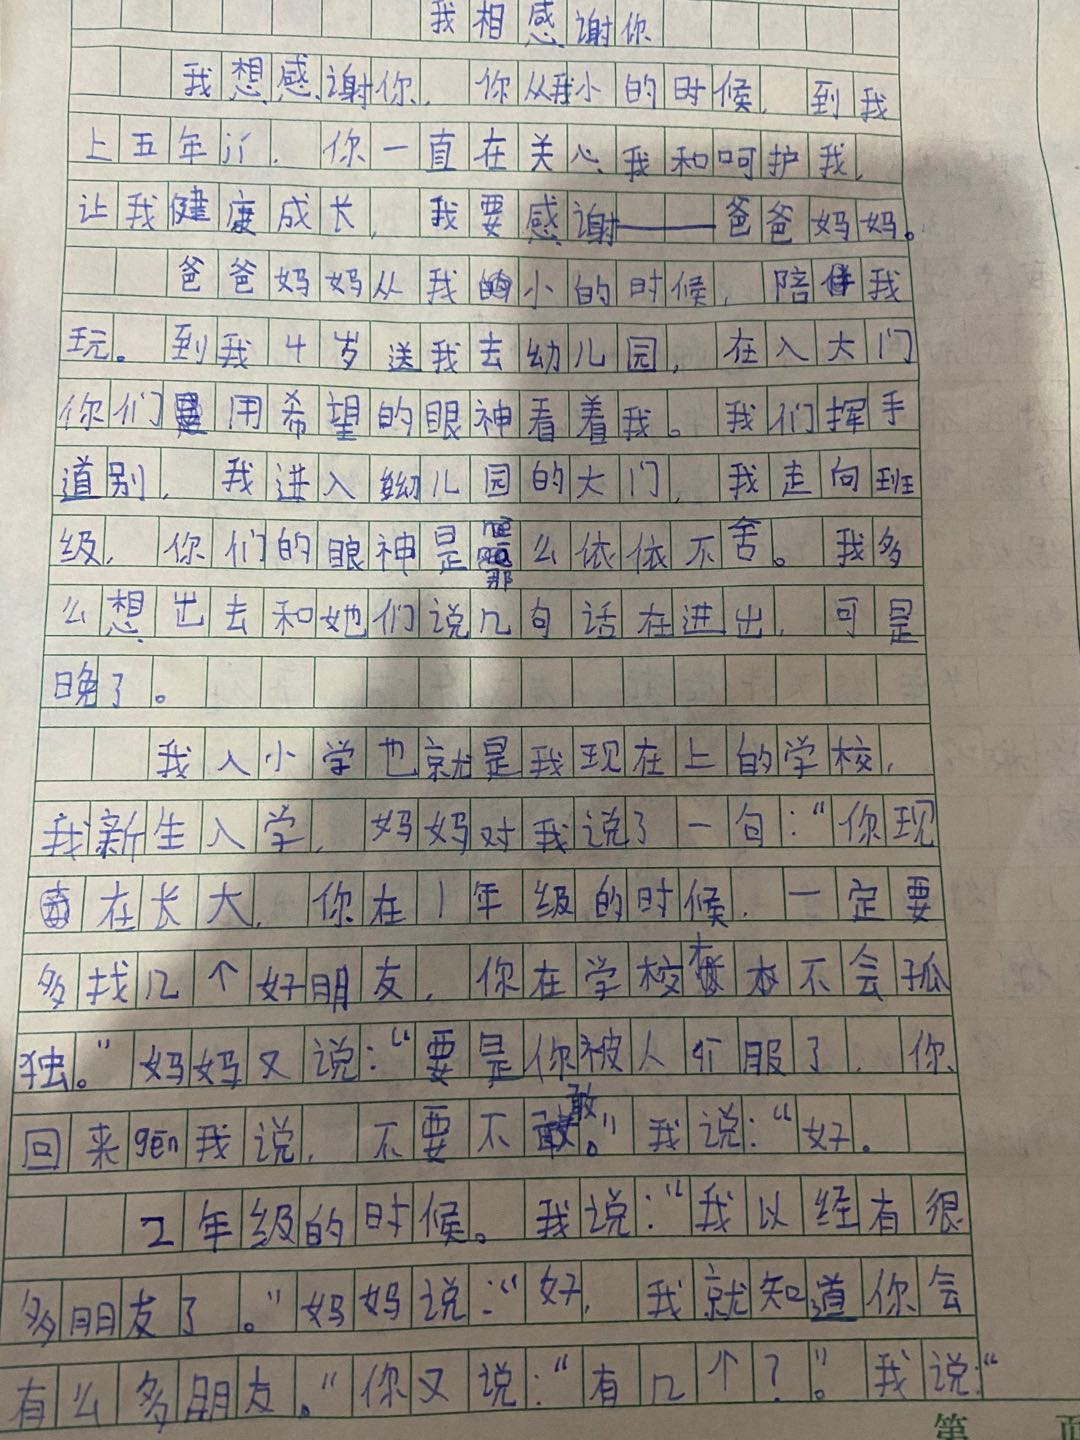 我相感谢你
我想感谢你，你从我小的时候，到我
上五年，你一直在关心我和呵护我，
让我健康成长，我要感谢——爸爸妈妈。
爸爸妈妈从我小的时候，陪伴我
玩。到我4岁送我去幼儿园，在入大门
你们是用希望的眼神看着我。我们挥手
道别，我进入幼儿园的大门，我走向班
级，你们的眼神是那么依依不舍。我多
么想出去和她们说几句话在进出，可是
晚了。
我入小学也就是我现在上的学校，
我新生入学，妈妈对我说了一句：“你现
在长大，你在1年级的时候，一定要
多找几个好朋友，你在学校不会孤
独。”妈妈又说：“要是你被人服了，你
回来gēn我说，不要不敢。”我说：“好。
2年级的时候。我说：“我以经有很
多朋友了。”妈妈说：“好，我就知道你会
有么多朋友。”你又说：“有几个？”。我说：“
第 页